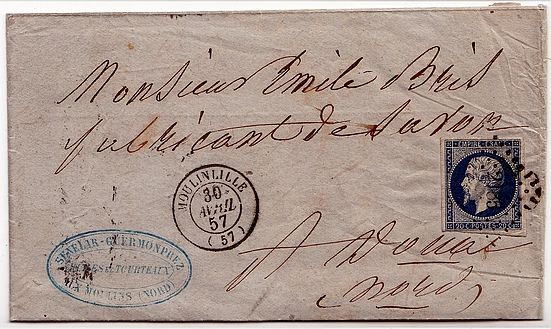 Monsieur Emile Bris
fabricant de Savon
A Douai
nord
MOULINLILLE
30
AVRIL
57
(57)
EMPIRE FRANC
20c POSTES 20c
HUILES & TOURTEAUX
AUX MOULINS (NORD)